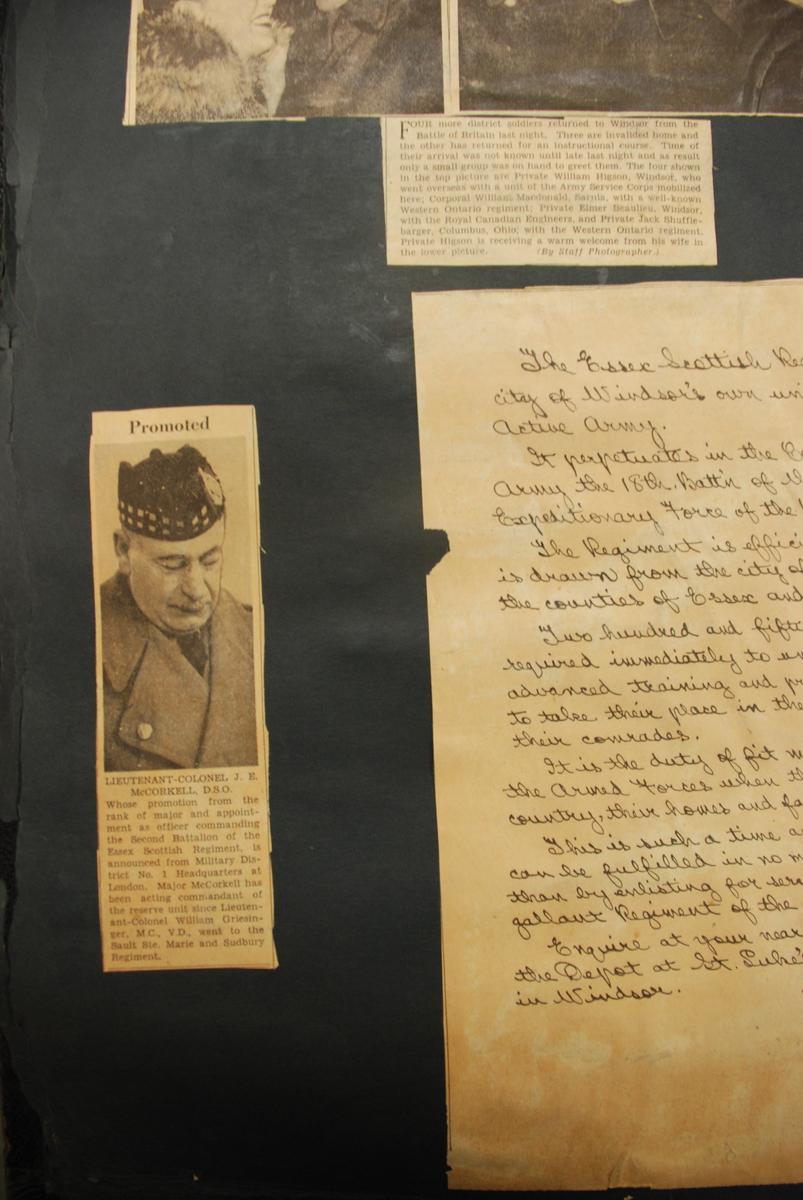 FOUR more district soldiers returned to Windsor from the
Battle of Britain last night. Three are invalided home and
the other has returned for an instructional course. Time of
their arrival was not known until late last night and as result
only a small group was on hand to greet them. The four shown
in the top picture are Private William Higson, Windsor, who
went overseas with a unit of the Army Service Corps mobilized
here; Corporal William Macdonald, Sarnia, with a well-known
Western Ontario regiment; Private Elmer Beaulieu, Windsor,
with the Royal Canadian Engineers, and Private Jack Shuffle-
barger, Columbus, Ohio, with the Western Ontario regiment.
Private Higson is receiving a warm welcome from his wife in
the lower picture. (By Staff Photographer.)
Promoted
LIEUTENANT-COLONEL J. E.
McCORKELL, D.S.O.
Whose promotion from the
rank of major and appoint-
ment as officer commanding
the Second Battalion of the
Essex Scottish Regiment, is
announced from Military Dis-
trict No. 1 Headquarters at
London. Major McCorkell has
been acting commandant of
the reserve unit since Lieuten-
ant-Colonel William Griesin-
ger, M.C., V.D., went to the
Sault Ste. Marie and Sudbury
Regiment.
The Essex Scottish Re
city of Windsor's own un
Active Army.
It perpetuates in the
Army the 18th. Batt'n of
Expeditionary Force of the
The Regiment is effici
is drawn from the city of
the counties of Essex and
Two hundred and fift
required immediately to
advanced training and pr
to take their place in the
their comrades.
It is the duty of fit m
the Armed Forces when th
country, their homes and fa
This is such a time a
can be fulfilled in no m
than by enlisting for ser
gallant Regiment of the
Enquire at your near
the Depot at St. Luke's
in Windsor.